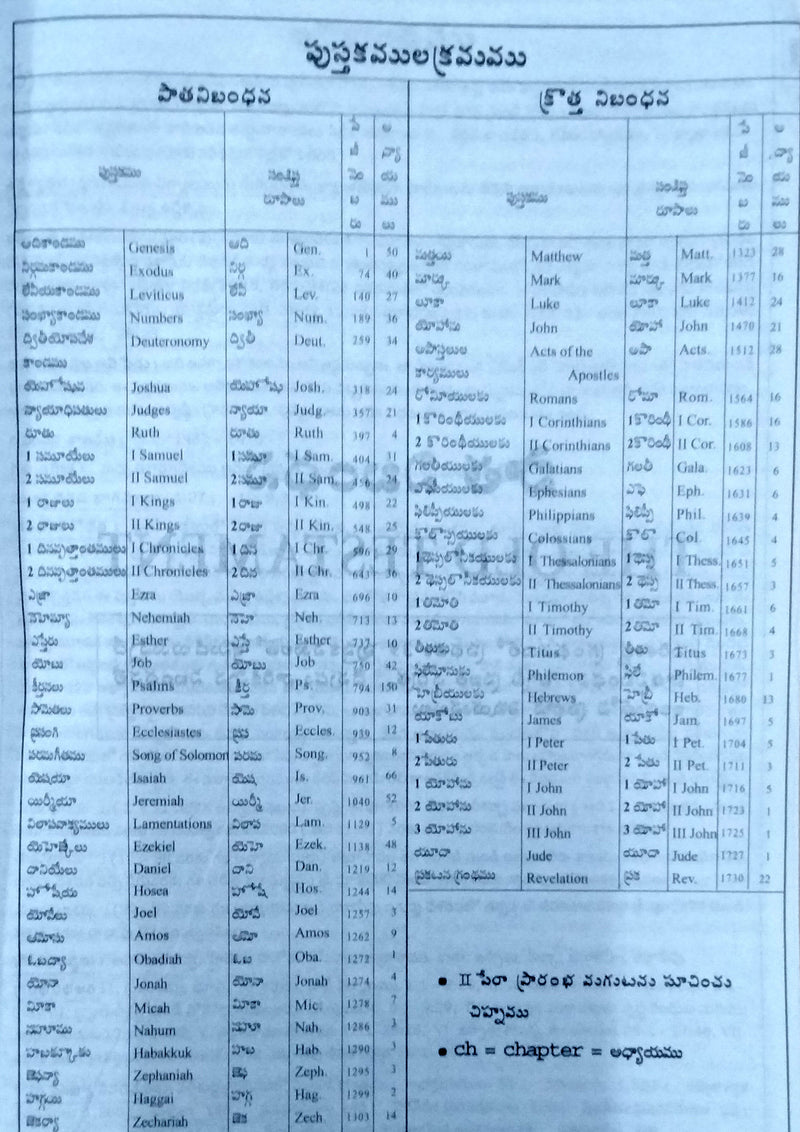 పుస్తకములక్రమము
పాతనిబంధన
పుస్తకము సంక్షిప్త రూపాలు పేజీ నెంబరు అధ్యాయములు
ఆదికాండము Genesis ఆది Gen. 1 50
నిర్గమకాండము Exodus నిర్గ Ex. 74 40
లేవీయకాండము Leviticus లేవీ Lev. 140 27
సంఖ్యాకాండము Numbers సంఖ్యా Num. 189 36
ద్వితీయోపదేశ Deuteronomy ద్వితీ Deut. 259 34
కాండము
యెహోషువ Joshua యెహోషు Josh. 318 24
న్యాయాధిపతులు Judges న్యాయా Judg. 357 21
రూతు Ruth రూతు Ruth 397 4
1 సమూయేలు I Samuel 1 సమూ I Sam. 404 31
2 సమూయేలు II Samuel 2 సమూ II Sam. 456 24
1 రాజులు I Kings 1 రాజు I Kin. 498 22
2 రాజులు II Kings 2 రాజు II Kin. 548 25
1 దినవృత్తాంతములు I Chronicles 1 దిన I Chr. 596 29
2 దినవృత్తాంతములు II Chronicles 2 దిన II Chr. 641 36
ఎజ్రా Ezra ఎజ్రా Ezra 696 10
నెహెమ్యా Nehemiah నెహె Neh. 713 13
ఎస్తేరు Esther ఎస్తే Esther 737 10
యోబు Job యోబు Job 750 42
కీర్తనలు Psalms కీర్త Ps. 794 150
సామెతలు Proverbs సామె Prov. 903 31
ప్రసంగి Ecclesiastes ప్రసం Eccles. 939 12
పరమగీతము Song of Solomon పరమ Song. 952 8
యెషయా Isaiah యెష Is. 961 66
యిర్మీయా Jeremiah యిర్మీ Jer. 1040 52
విలాపవాక్యములు Lamentations విలాప Lam. 1129 5
యెహెజ్కేలు Ezekiel యెహె Ezek. 1138 48
దానియేలు Daniel దాని Dan. 1219 12
హోషేయ Hosea హోషే Hos. 1244 14
యోవేలు Joel యోవే Joel 1257 3
ఆమోసు Amos ఆమో Amos 1262 9
ఓబద్యా Obadiah ఓబ Oba. 1272 1
యోనా Jonah యోనా Jonah 1274 4
మీకా Micah మీకా Mic. 1278 7
నహూము Nahum నహూ Nah. 1286 3
హబక్కూకు Habakkuk హబ Hab. 1290 3
జెఫన్యా Zephaniah జెఫ Zeph. 1295 3
హగ్గయి Haggai హగ్గ Hag. 1299 2
జెకర్యా Zechariah జెక Zech 1303 14
క్రొత్త నిబంధన
పుస్తకము సంక్షిప్త రూపాలు పేజీ నెంబరు అధ్యాయములు
మత్తయి Matthew మత్త Matt. 1323 28
మార్కు Mark మార్కు Mark 1377 16
లూకా Luke లూకా Luke 1412 24
యోహాను John యోహా John 1470 21
అపొస్తలుల Acts of the అపొ Acts. 1512 28
కార్యములు Apostles
రోమీయులకు Romans రోమా Rom. 1564 16
1 కొరింథీయులకు I Corinthians 1కొరింథీ I Cor. 1586 16
2 కొరింథీయులకు II Corinthians 2కొరింథీ II Cor. 1608 13
గలతీయులకు Galatians గలతీ Gala. 1623 6
ఎఫెసీయులకు Ephesians ఎఫె Eph. 1631 6
ఫిలిప్పీయులకు Philippians ఫిలిప్పీ Phil. 1639 4
కొలొస్సయులకు Colossians కొలొ Col. 1645 4
1 థెస్సలొనీకయులకు I Thessalonians 1 థెస్స I Thess. 1651 5
2 థెస్సలొనీకయులకు II Thessalonians 2 థెస్స II Thess. 1657 3
1 తిమోతి I Timothy 1 తిమో I Tim. 1661 6
2 తిమోతి II Timothy 2 తిమో II Tim. 1668 4
తీతుకు Titus తీతు Titus 1673 3
ఫిలేమోనుకు Philemon ఫిలే Philem. 1677 1
హెబ్రీయులకు Hebrews హెబ్రీ Heb. 1680 13
యాకోబు James యాకో Jam. 1697 5
1 పేతురు I Peter 1 పేతు I Pet. 1704 5
2 పేతురు II Peter 2 పేతు II Pet. 1711 3
1 యోహాను I John 1 యోహా I John 1716 5
2 యోహాను II John 2 యోహా II John 1723 1
3 యోహాను III John 3 యోహా III John 1725 1
యూదా Jude యూదా Jude 1727 1
ప్రకటన గ్రంథము Revelation ప్రక Rev. 1730 22
● II పేరా ప్రారంభ మగుటను సూచించు
చిహ్నము
● ch = chapter = అధ్యాయము